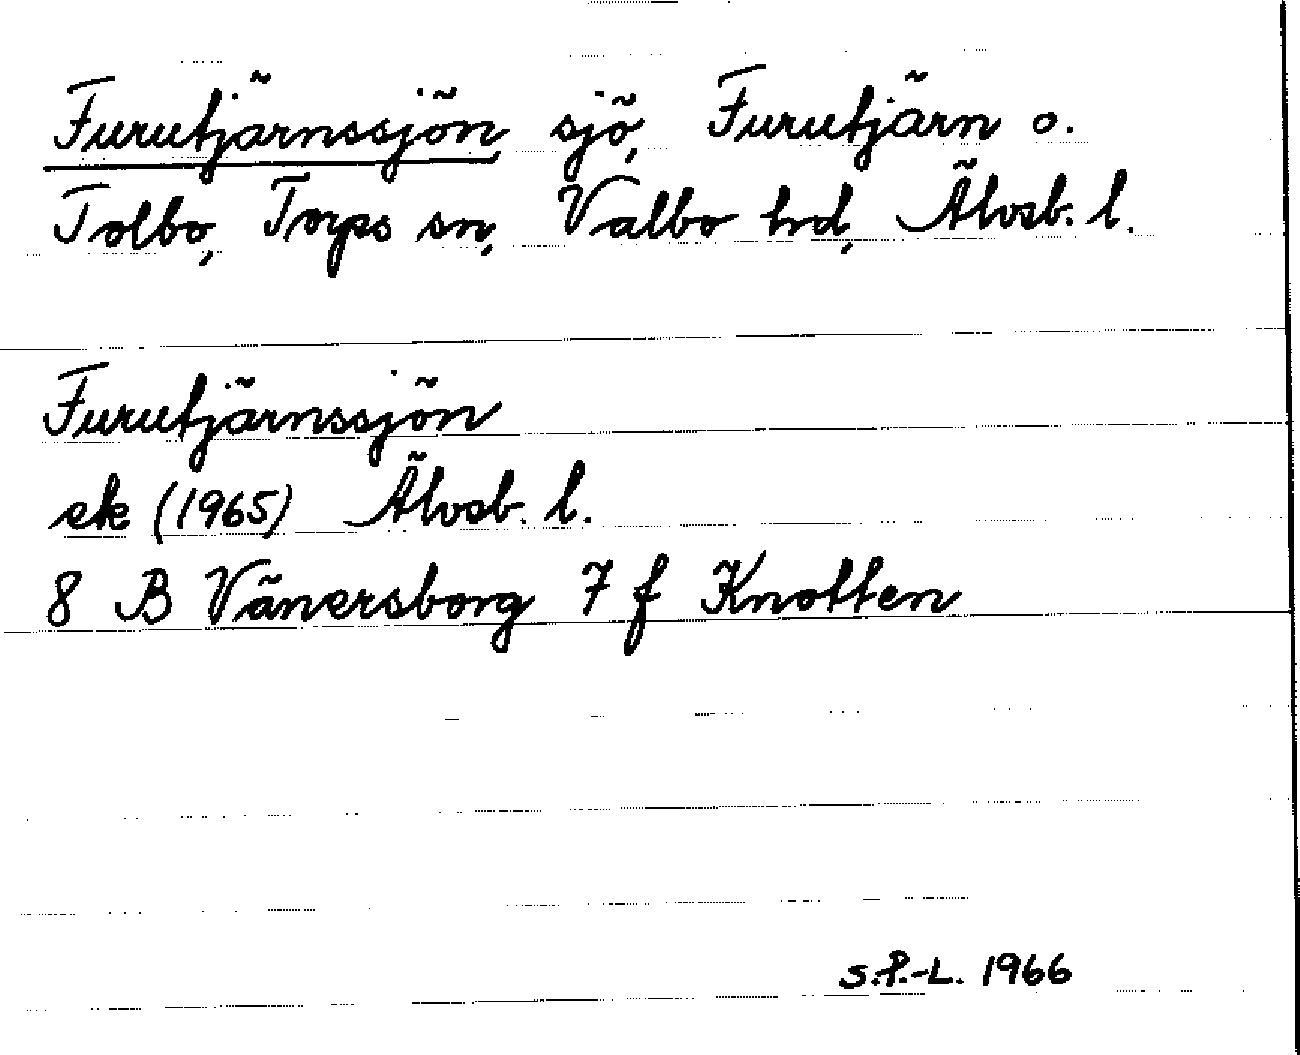 Furutjärnssjön sjö, Furutjärn o.
Tolbo, Torps sn, Valbo hd, Älvsb. l.
Furutjärnssjön
ek (1965) Älvsb. l.
8 B Vänersborg 7 f Knotten
S.P.-L. 1966